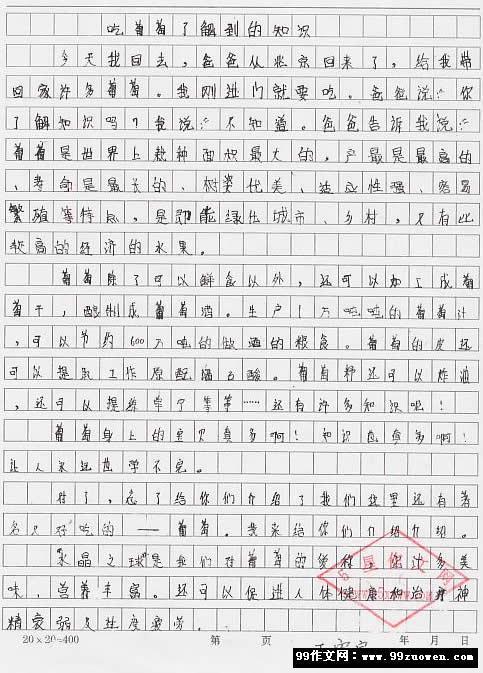 吃葡萄了解到的知识
今天我回去，爸爸从北京回来了，给我带
回家许多葡萄。我刚进门就要吃。爸爸说：“你
了解知识吗？我说：“不知道。爸爸告诉我说：“
葡萄是世界上栽种面积最大的，产最是最高的
、寿命是最长的、树姿优美、适应性强、容易
繁殖等特点，是即能绿化城市、乡村，又有比
较高的经济的水果。
葡萄除了可以鲜食以外，还可以加工成葡
萄干，酿制成葡萄酒。生产1万吨吨的葡萄汁
，可以节约600万吨的做酒的粮食。葡萄的皮还
可以提取工作原酝酒石酸。葡萄籽还可以炸油
，还可以提练单宁等等……还有许多知识呢！
葡萄身上的宝贝真多啊！知识也真多啊！
让人永远也学不完。
对了，忘了给你们介绍了我们这里还有著
名又好吃的——葡萄。我来给你们介绍介绍。
“水晶之球”是我们对葡萄的美称，它汁多美
味，营养丰富。还可以促进人体健康和治疗神
精衰弱及过度疲劳。
20×20=400 第 页 年 月 日
99作文网：www.99zuowen.com